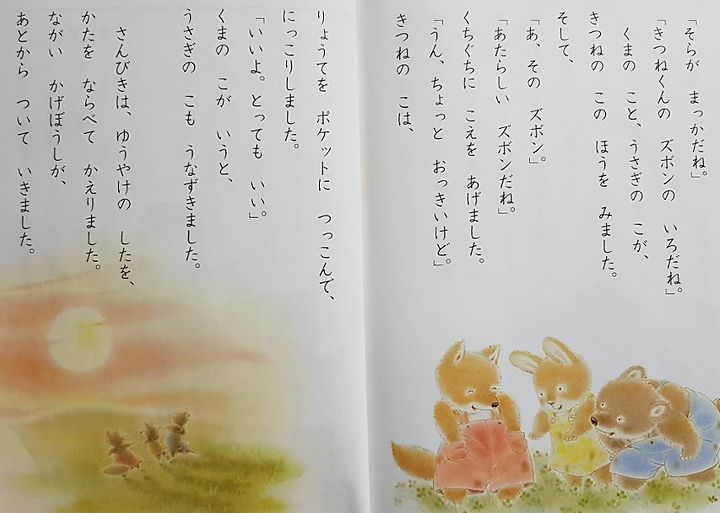 「そらが　まっかだね。」
「きつねくんの　ズボンの　いろだね。」
くまの　こと、うさぎの　こが、
きつねの　この　ほうを　みました。
そして、
「あ、その　ズボン。」
「あたらしい　ズボンだね。」
くちぐちに　こえを　あげました。
「うん、ちょっと　おっきいけど。」
きつねの　こは、
りょうてを　ポケットに　つっこんで、
にっこりしました。
「いいよ。とっても　いい。」
くまの　こが　いうと、
うさぎの　こも　うなずきました。
さんびきは、ゆうやけの　したを、
かたを　ならべて　かえりました。
ながい　かげぼうしが、
あとから　ついて　いきました。